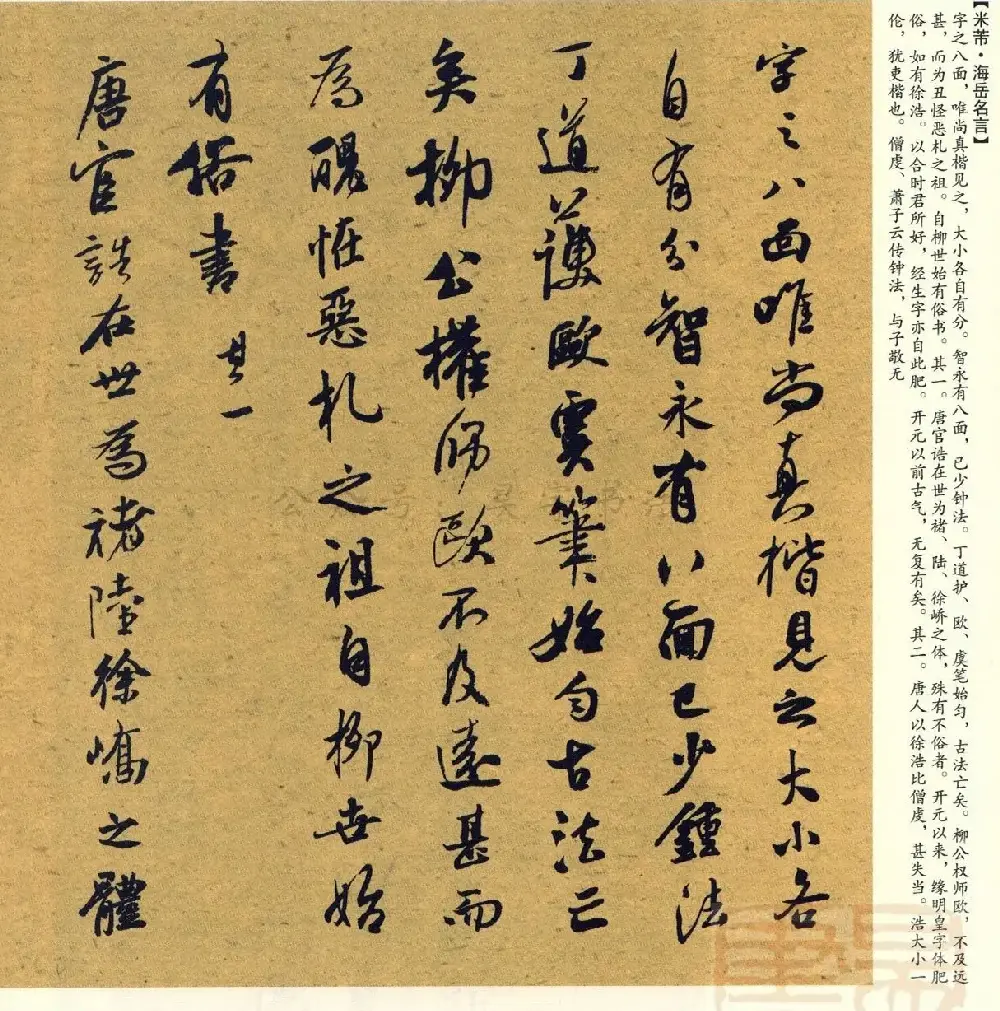 【米芾·海岳名言】
字之八面，唯尚真楷见之，大小各自有分。智永有八面，已少钟法。丁道护、欧、虞笔始匀，古法亡矣。柳公权师欧，不及远
甚，而为丑怪恶札之祖。自柳世始有俗书。其一。唐官诰在世为褚、陆、徐峤之体，殊有不俗者。开元以来，缘明皇字体肥
俗，如有徐浩。以合时君所好，经生字亦自此肥。开元以前古气，无复有矣。其二。唐人以徐浩比僧虔，甚失当。浩大小一
伦，犹吏楷也。僧虔、萧子云传钟法，与子敬无
字之八面唯尚真楷見之大小各
自有分智永有八面已少鍾法
丁道護歐虞筆始匀古法亡
矣柳公權師歐不及遠甚而
為醜恠惡札之祖自柳世始
有俗書 其一
唐官誥在世為褚陸徐嶠之體